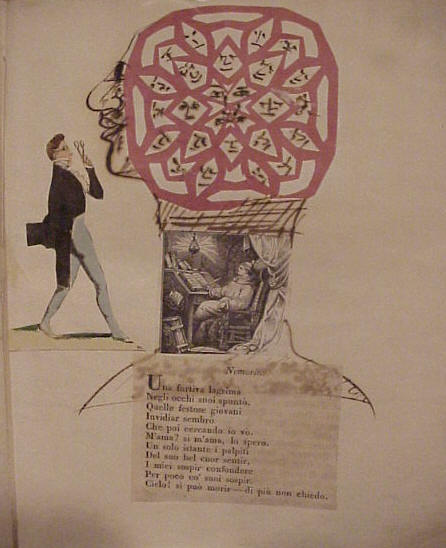 Nemorino
Una furtiva lagrima
Negli occhi suoi spuntò,
Quelle festose giovani
Invidiar sembrò
Che poi cercando io vo.
M'ama? si m'ama, lo spero.
Un solo istante i palpiti
Del suo bel cuor sentir,
I miei sospir confondere
Per poco co' suoi sospir.
Cielo! si può morir—di più non chiedo.